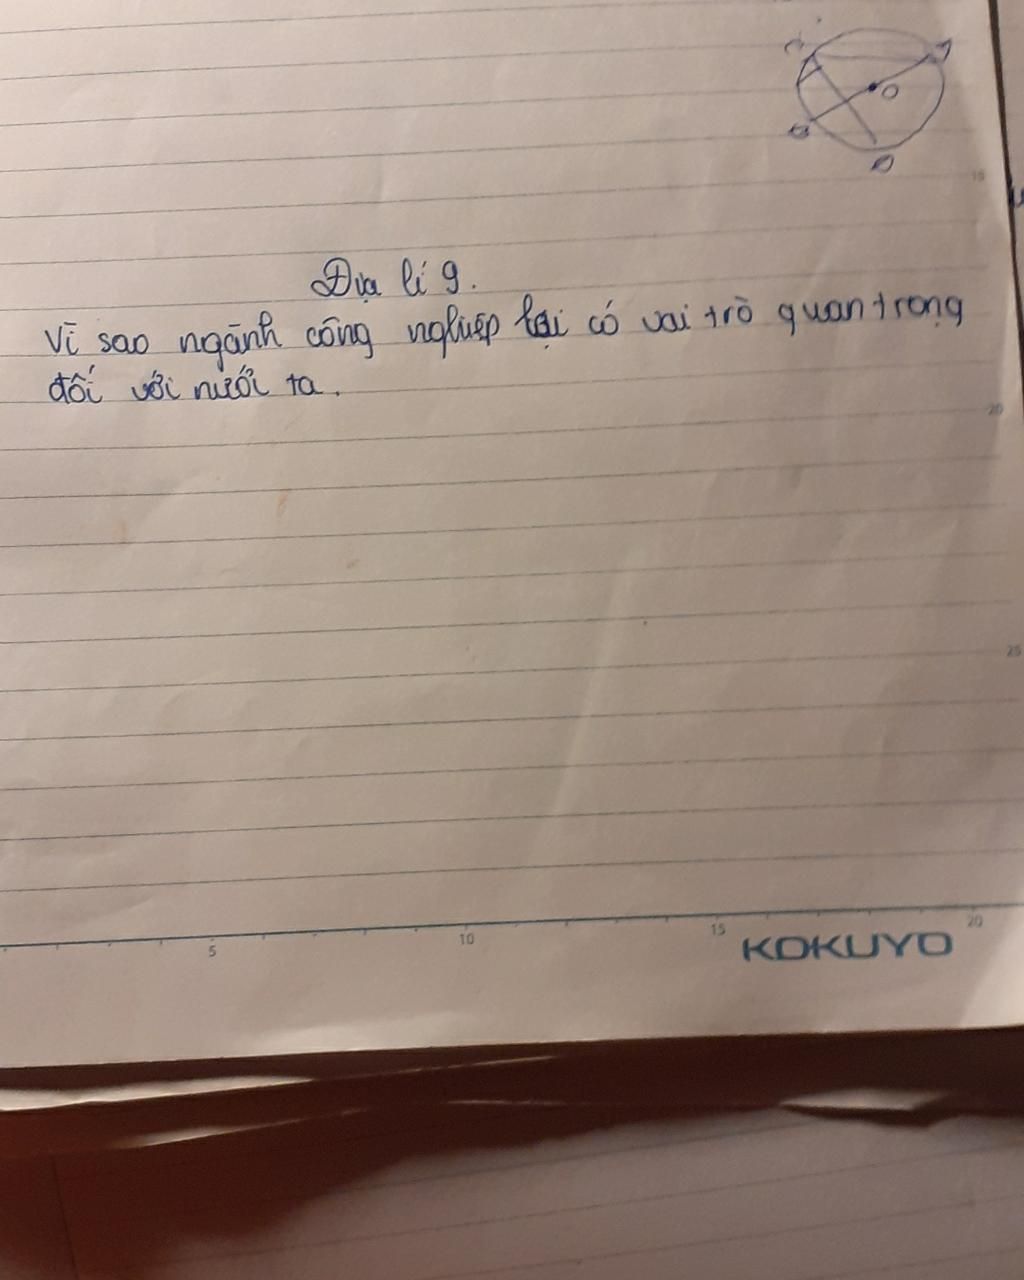 O
15
Địa lí 9.
Vì sao ngành công nghiệp lại có vai trò quan trọng
đối với nước ta.
20
25
5
10
15
20
KOKUYO